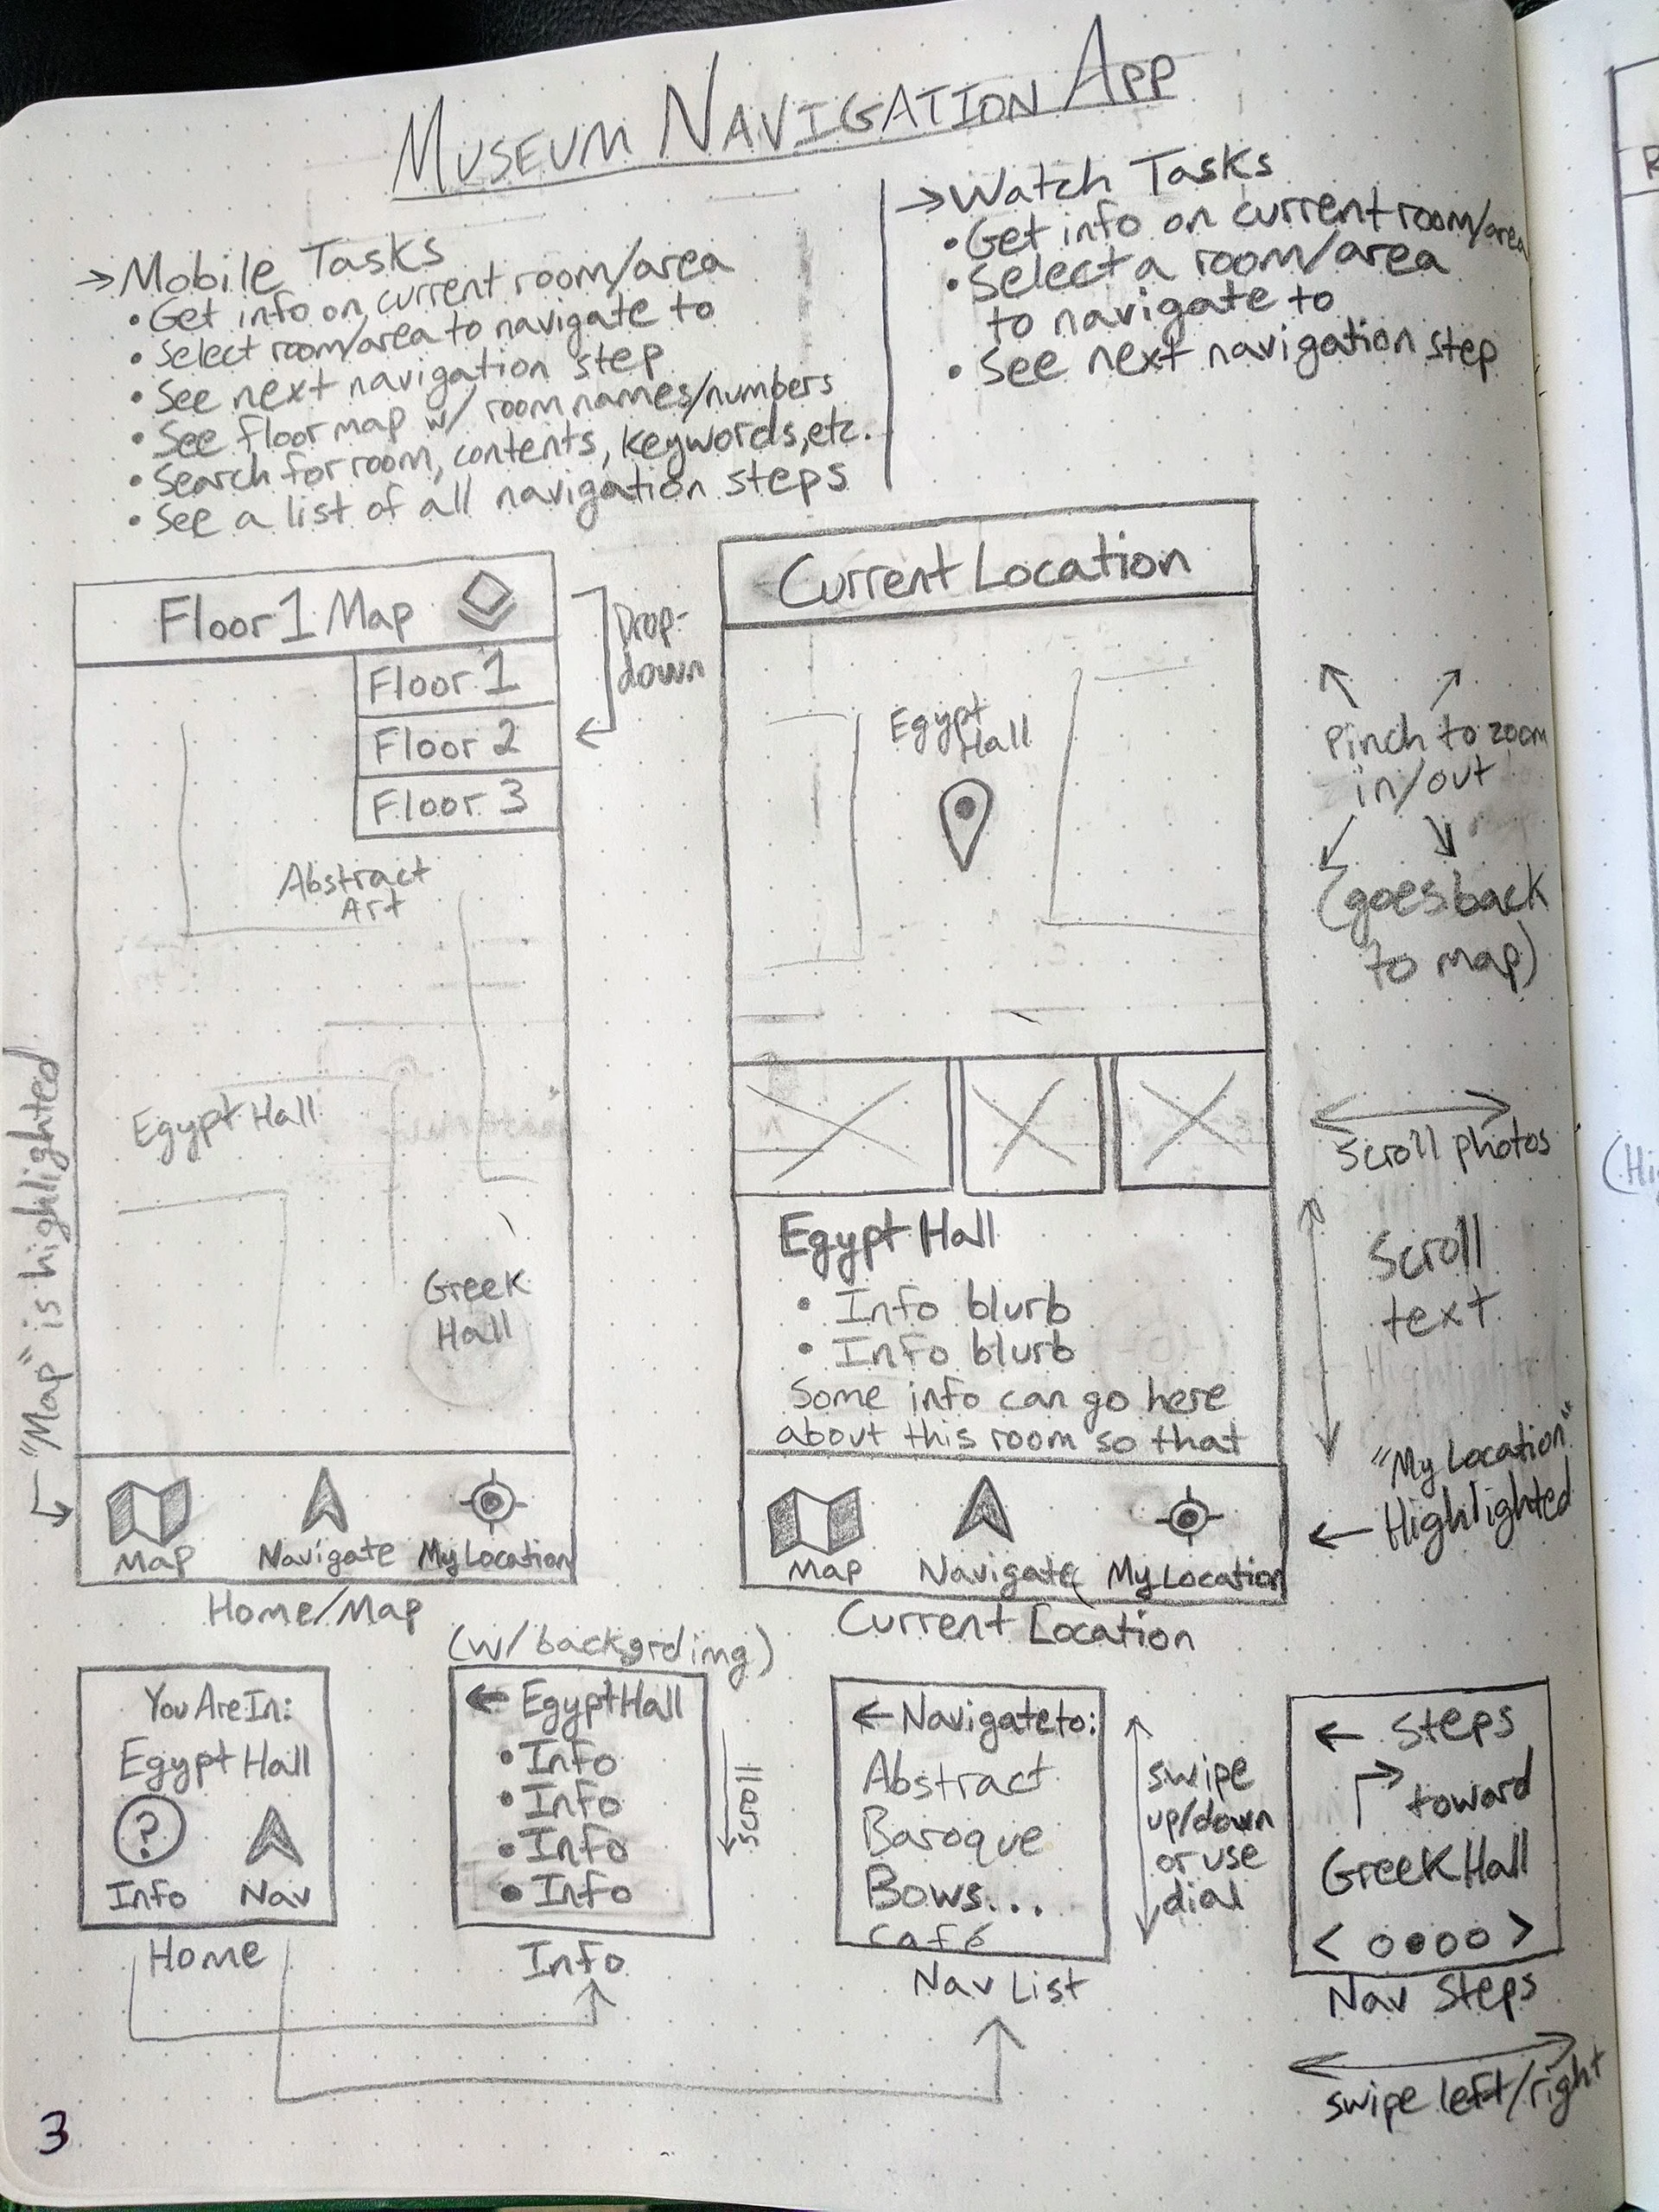 MUSEUM NAVIGATION APP
→ Mobile Tasks
• Get info on current room/area
• Select room/area to navigate to
• See next navigation step
• See floor map w/ room names/numbers
• Search for room, contents, keywords, etc.
• See a list of all navigation steps
→ Watch Tasks
• Get info on current room/area
• Select a room/area
to navigate to
• See next navigation step
Floor 1 Map
Floor 1
Floor 2
Floor 3
Drop-
down
Abstract
Art
Egypt Hall
Greek
Hall
"Map" is highlighted
Map Navigate My Location
Home/Map
Current Location
Egypt
Hall
Pinch to zoom
in/out
(goes back
to map)
Scroll photos
Egypt Hall
• Info blurb
• Info blurb
Some info can go here
about this room so that
Scroll
text
"My Location"
← Highlighted
Map Navigate My Location
Current Location
You Are In:
Egypt Hall
?
Info Nav
Home
(w/ backgrd img)
← Egypt Hall
• Info
• Info
• Info
• Info
scroll
Info
← Navigate to:
Abstract
Baroque
Bows...
Café
swipe
up/down
or use
dial
Nav List
← Steps
toward
Greek Hall
< ○●○○ >
Nav Steps
swipe left/right
3
(Hi